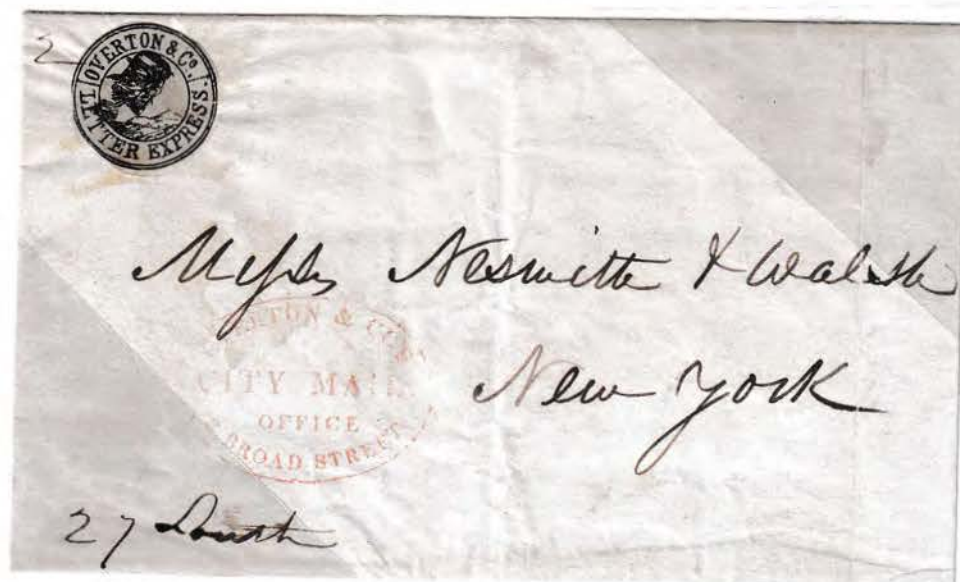 2
OVERTON & Co.
LETTER EXPRESS
Messrs Nesmith & Walsh
New York
OVERTON & CO.
CITY MAIL
OFFICE
BROAD STREET
27 South